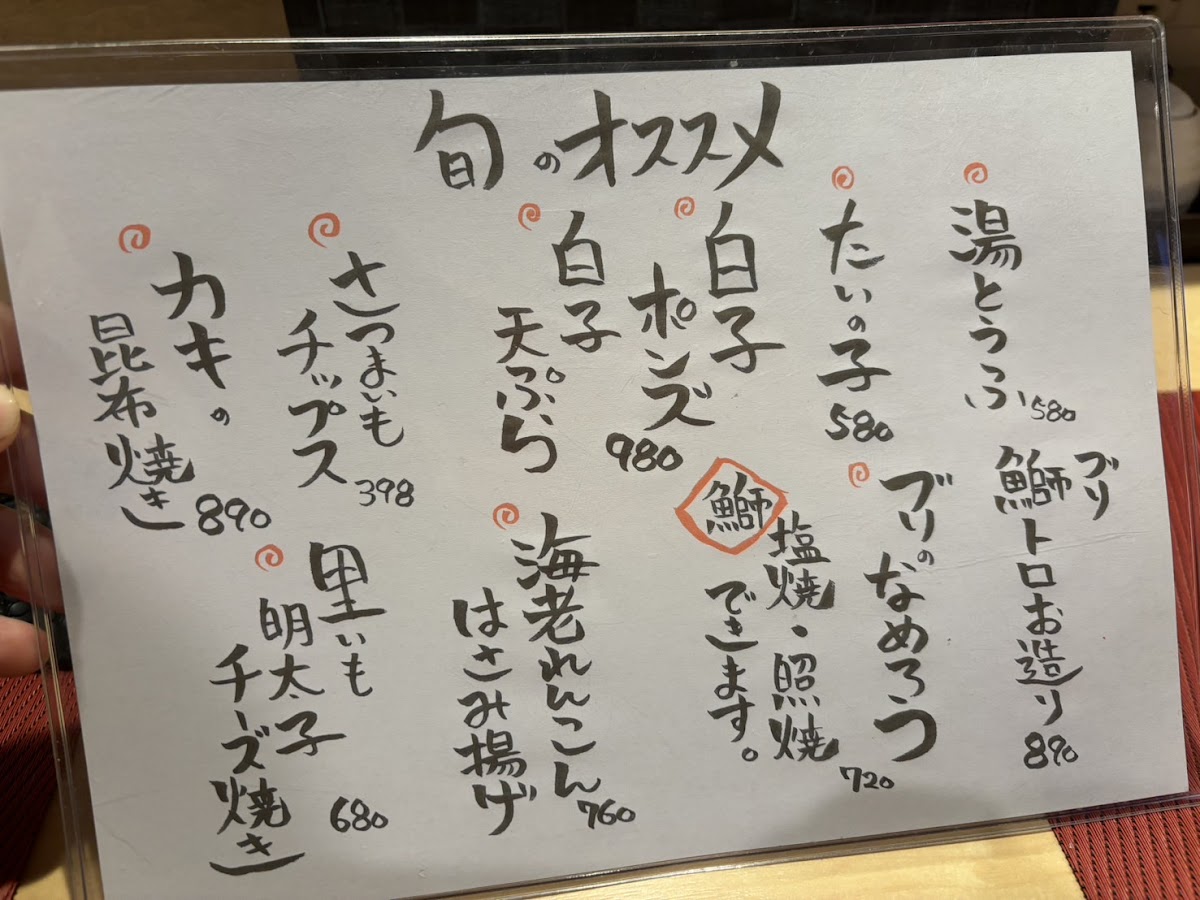 旬のオススメ
湯とうふ
580
ブリ
鰤トロお造り
890
たいの子
580
ブリのなめろう
鰤
塩焼・照焼
できます。
720
白子
ポンズ
980
白子
天ぷら
海老れんこん
はさみ揚げ
760
さつまいも
チップス
398
里いも
明太子
チーズ焼き
680
カキの
昆布焼き
890